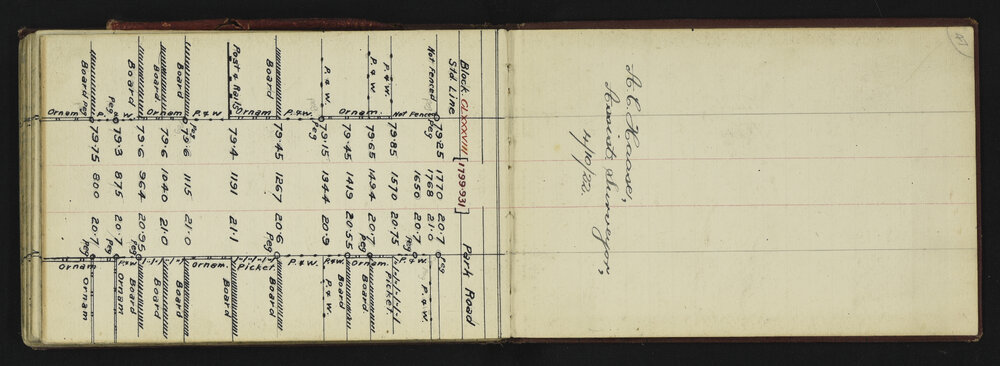 Block CLXXXVIII [1799.931] Park Road
Std Line
Not Fenced Peg 79.25 1770 20.7 Peg
1768 21.0
1650 20.7 Peg P. & W. P. & W.
P. & W. Not Fenced 79.85 1570 20.75 Picket
P. & W. 79.65 1494 20.7 Peg Board
Ornam. 79.45 1419 20.55 Ornam. Board
P. & W. Peg 79.15 1344 20.9 P. & W. P. & W.
P. & W. P. & W.
Board 79.45 1267 20.6 Peg Board
Ornam Picket
Post & Rails 79.4 1191 21.1 Board
P. & W. Ornam.
Board Peg 79.6 1115 21.0 Board
Board Ornam 79.6 1040 21.0 Board
Board 79.6 964 20.95 Peg Board
P. & W. Peg 79.3 875 20.7 Peg P. & W. Ornam
Board Ornam Peg 79.75 800 20.7 Peg Ornam Ornam
Assist. Surveyor,
4/10/22.